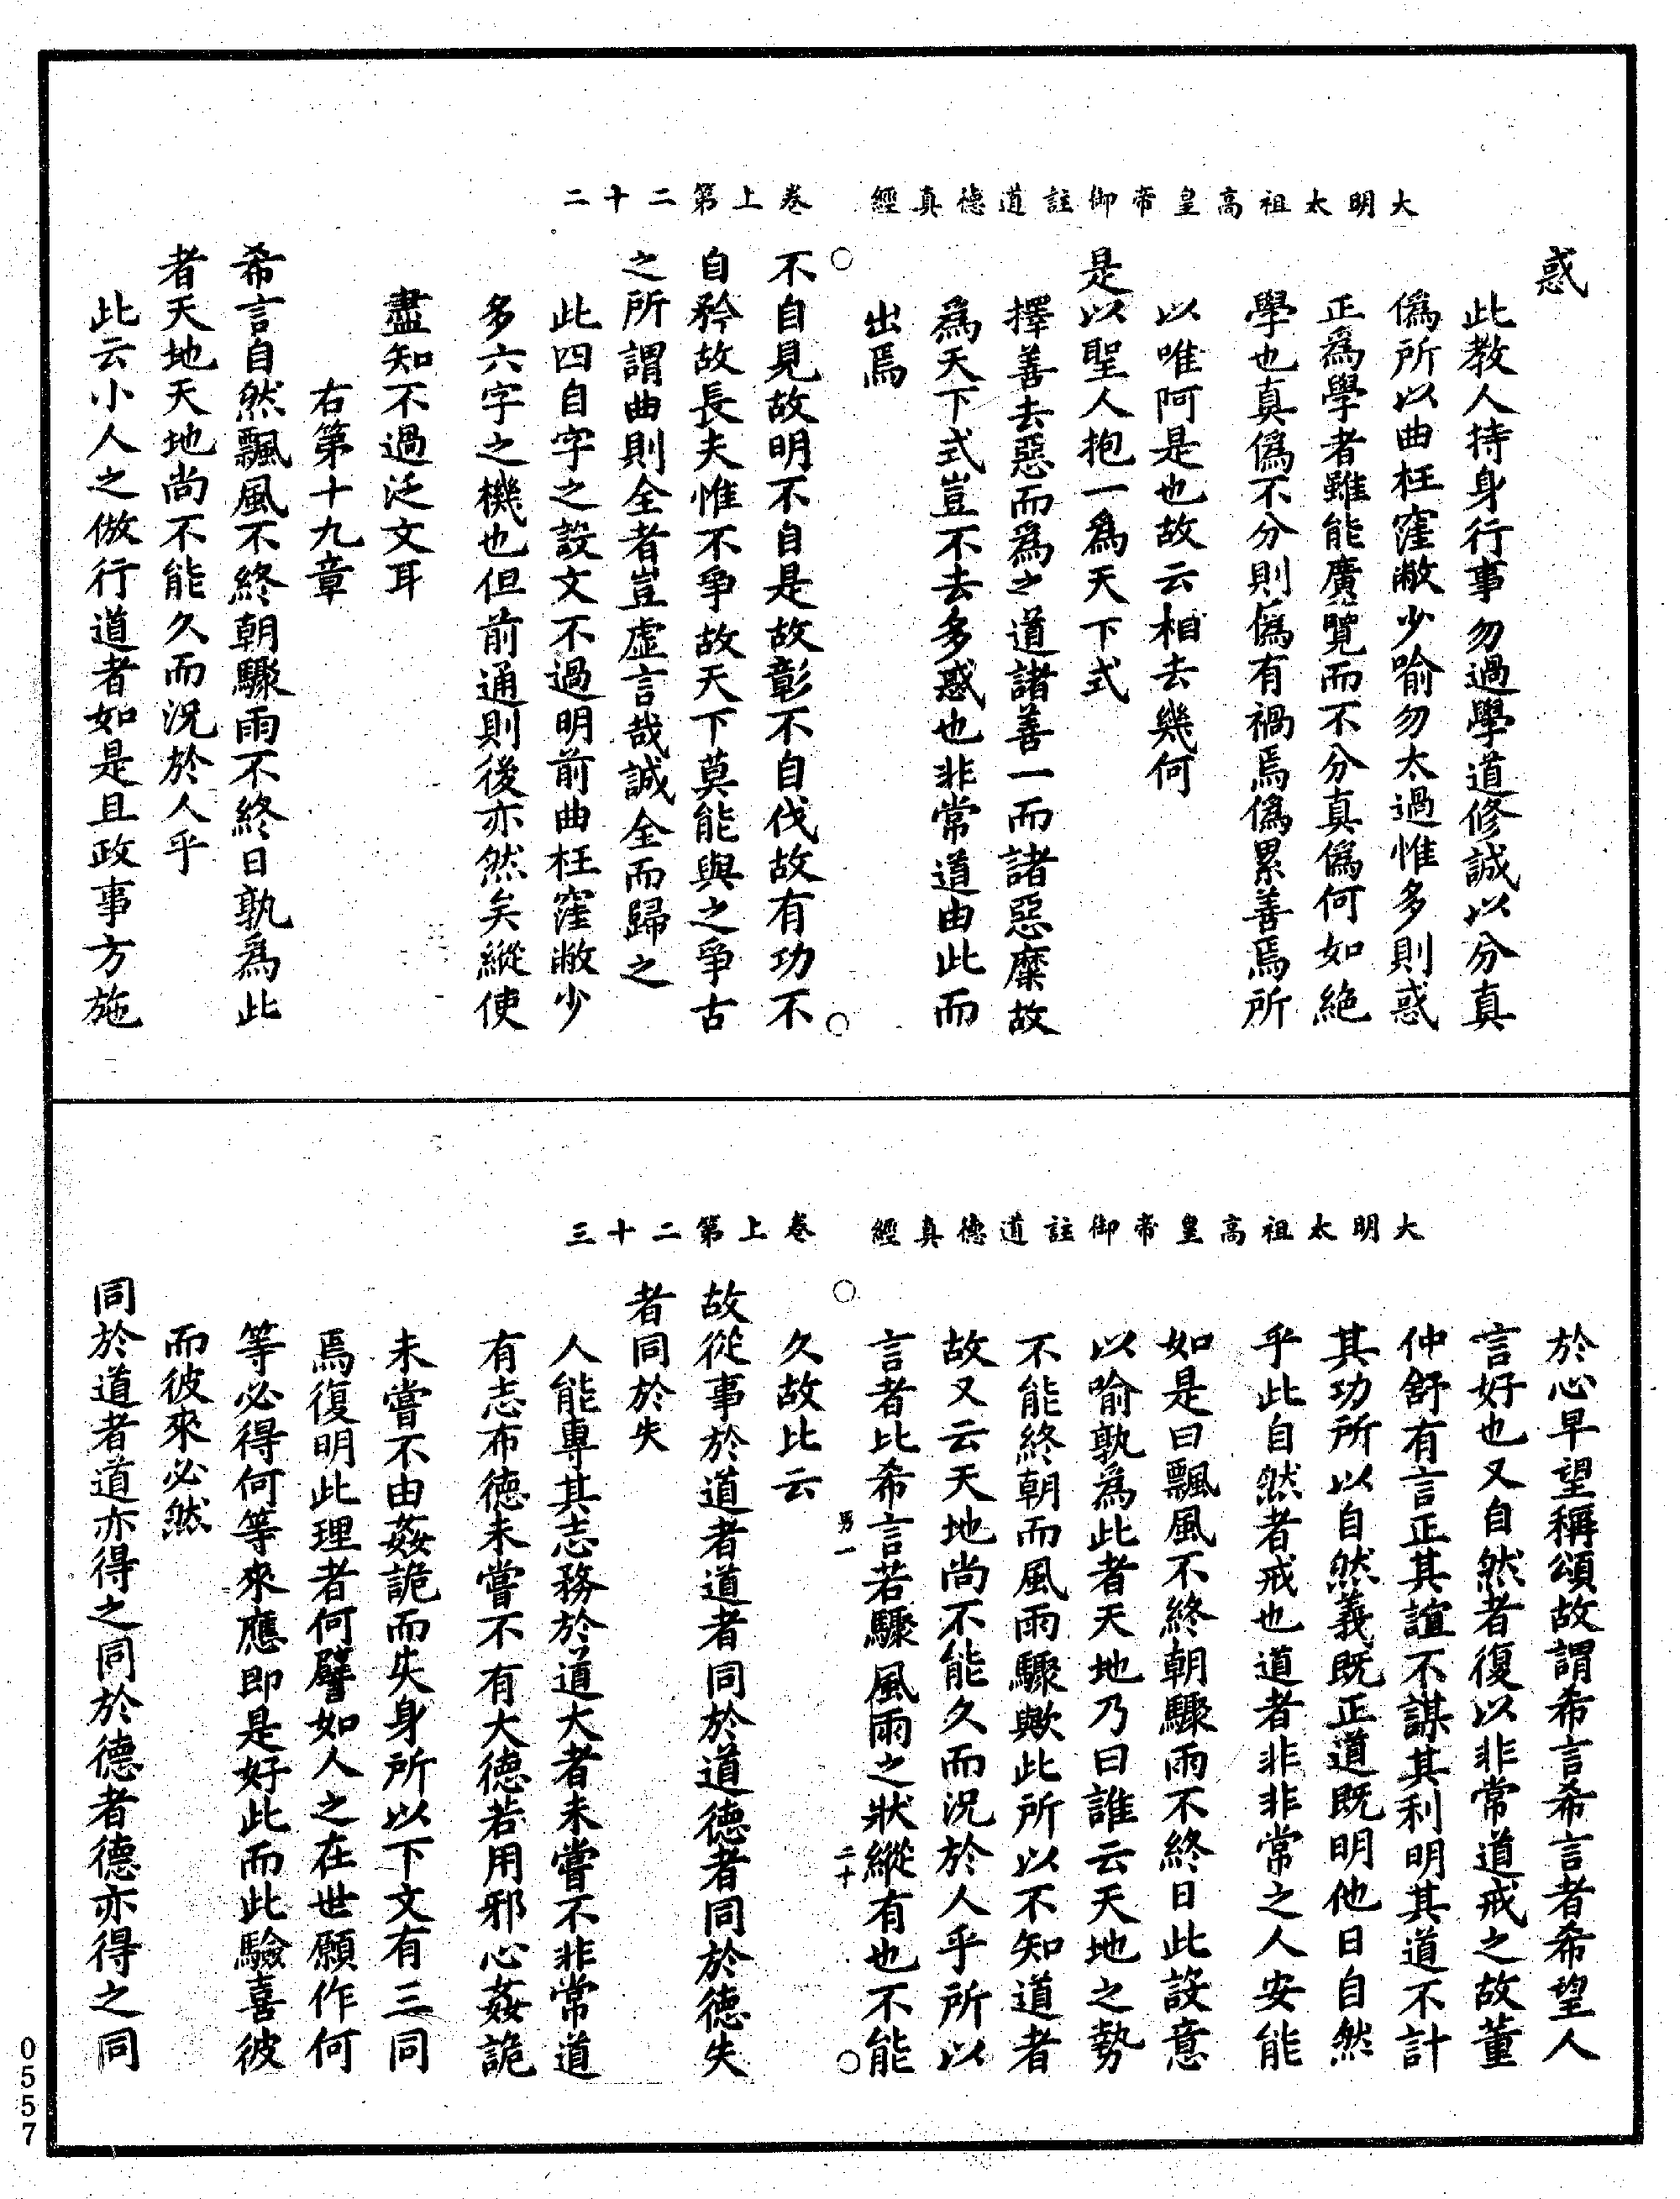 大明太祖高皇帝御註道德真經　卷上第二十二
惑
此教人持身行事勿過學道修誠以分真
偽所以曲枉窪敝少喻勿太過惟多則惑
正為學者雖能廣覽而不分真偽何如絕
學也真偽不分則偽有禍焉偽累善焉所
以唯阿是也故云相去幾何
是以聖人抱一為天下式
擇善去惡而為之道諸善一而諸惡糜故
為天下式豈不去多惑也非常道由此而
出焉
不自見故明不自是故彰不自伐故有功不
自矜故長夫惟不爭故天下莫能與之爭古
之所謂曲則全者豈虛言哉誠全而歸之
此四自字之設文不過明前曲枉窪敝少
多六字之機也但前通則後亦然矣縱使
盡知不過泛文耳
右第十九章
希言自然飄風不終朝驟雨不終日孰為此
者天地天地尚不能久而況於人乎
此云小人之倣行道者如是且政事方施
大明太祖高皇帝御註道德真經　卷上第二十三
於心早望稱頌故謂希言希言者希望人
言好也又自然者復以非常道戒之故董
仲舒有言正其誼不謀其利明其道不計
其功所以自然義既正道既明他日自然
乎此自然者戒也道者非非常之人安能
如是曰飄風不終朝驟雨不終日此設意
以喻孰為此者天地乃曰誰云天地之勢
不能終朝而風雨驟歟此所以不知道者
故又云天地尚不能久而況於人乎所以
言者比希言若驟風雨之狀縱有也不能
男一　二十
久故比云
故從事於道者道者同於道德者同於德失
者同於失
人能專其志務於道大者未嘗不非常道
有志布德未嘗不有大德若用邪心姦詭
未嘗不由姦詭而失身所以下文有三同
焉復明此理者何譬如人之在世願作何
等必得何等來應即是好此而此驗喜彼
而彼來必然
同於道者道亦得之同於德者德亦得之同
0557